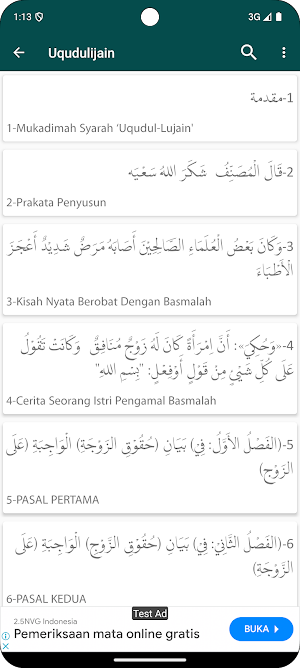 1:13
3G
Uqudulijain
1-مقدمة
1-Mukadimah Syarah 'Uqudul-Lujain'
2-قَالَ الْمُصَنِّفُ شَكَرَ اللهُ سَعْيَه
2-Prakata Penyusun
3-وَكَانَ بَعْضُ الْعُلَمَاءِ الصَّالِحِيْنَ أَصَابَهُ مَرَضٌ شَدِيْدٌ أَعْجَزَ
الْأَطْبَاءَ
3-Kisah Nyata Berobat Dengan Basmalah
4-«وَحُكِيَ»: أَنَّ اِمْرَأَةً كَانَ لَهُ زَوْجٌ مُنَافِقٌ وَكَانَتْ تَقُوْلُ
عَلَى كُلِّ شَيْئٍ مِنْ قَوْلٍ أَوْفِعْلٍ: "بِسْمِ اللهِ"
4-Cerita Seorang Istri Pengamal Basmalah
5-(الفَصْلُ الأَوَّلُ: فِيْ) بَيَانِ (حُقُوْقِ الزَّوْجَةِ) الْوَاجِبَةِ (عَلَى
الزَّوْجِ)
5-PASAL PERTAMA
6-(الفَصْلُ الثَّانِيْ: فِيْ) بَيَانِ (حُقُوْقِ الزَّوْجِ) الْوَاجِبَةِ (عَلَى
الزَّوْجَةِ)
6-PASAL KEDUA
Test Ad
2.5NVG Indonesia
Pemeriksaan mata online gratis
BUKA